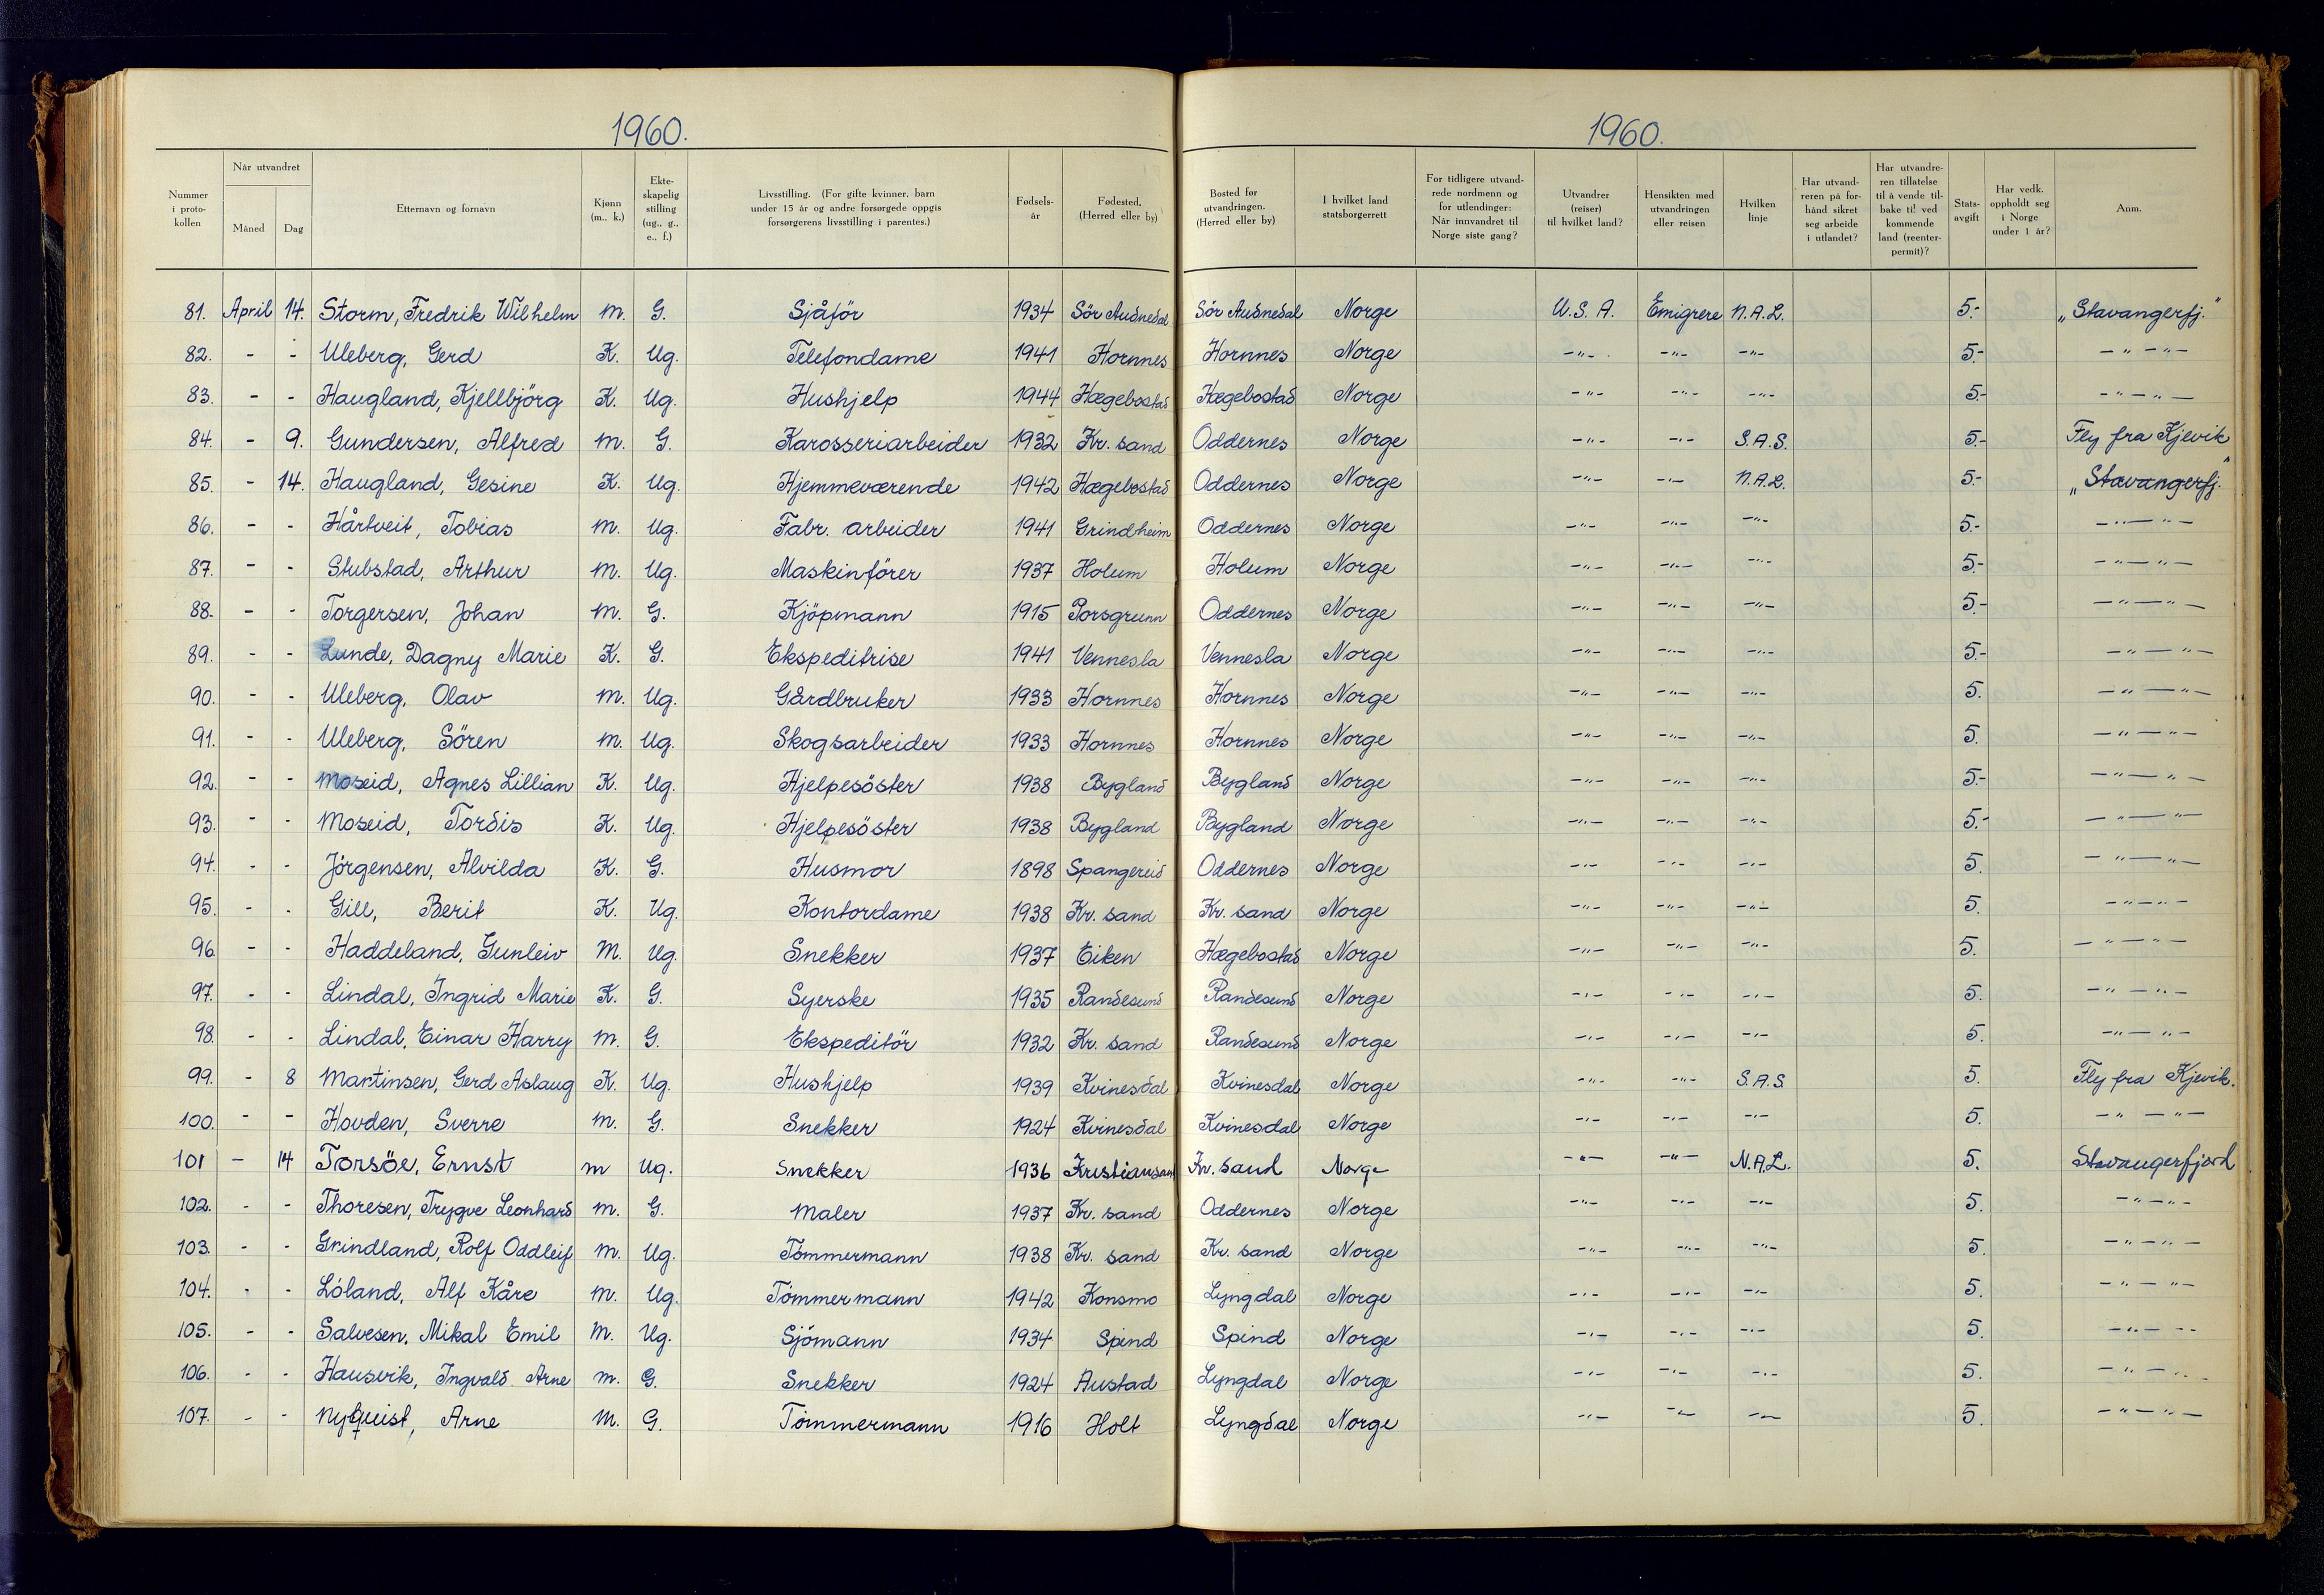 1960.
1960.
Nummer i protokollen | Når utvandret Måned | Dag | Etternavn og fornavn | Kjønn (m., k.) | Ekteskapelig stilling (ug., g., e., f.) | Livsstilling. (For gifte kvinner, barn under 15 år og andre forsørgede oppgis forsørgerens livsstilling i parentes.) | Fødselsår | Fødested. (Herred eller by) | Bosted før utvandringen. (Herred eller by) | I hvilket land statsborgerrett | For tidligere utvandrede nordmenn og for utlendinger: Når innvandret til Norge siste gang? | Utvandrer (reiser) til hvilket land? | Hensikten med utvandringen eller reisen | Hvilken linje | Har utvandreren på forhånd sikret seg arbeide i utlandet? | Har utvandreren tillatelse til å vende tilbake til ved kommende land (reenterpermit)? | Statsavgift | Har vedk. oppholdt seg i Norge under 1 år? | Anm.
81. April 14. Storm, Fredrik Wilhelm m. G. Sjåför 1934 Sör Audnedal Sör Audnedal Norge U.S.A. Emigrere N.A.L. 5.- „Stavangerfj."
82. - - Uleberg, Gerd K. Ug. Telefondame 1941 Hornnes Hornnes Norge -"- -"- -"- 5.- -"-"-
83. - - Haugland, Kjellbjörg K. Ug. Hushjelp 1944 Hægebostad Hægebostad Norge -"- -"- -"- 5.- -"-"-
84. - 9. Gundersen, Alfred m. G. Karosseriarbeider 1932 Kr. sand Oddernes Norge -"- -"- S.A.S. 5.- Fly fra Kjevik
85. - 14. Haugland, Gesine K. Ug. Hjemmeværende 1942 Hægebostad Oddernes Norge -"- -"- N.A.L. 5.- „Stavangerfj."
86. - - Hårtveit, Tobias m. Ug. Fabr. arbeider 1941 Grindheim Oddernes Norge -"- -"- -"- 5.- -"-"-
87. - - Stubstad, Arthur m. Ug. Maskinförer 1937 Holum Holum Norge -"- -"- -"- 5.- -"-"-
88. - - Torgersen, Johan m. G. Kjöpmann 1915 Porsgrunn Oddernes Norge -"- -"- -"- 5.- -"-"-
89. - - Lunde, Dagny Marie K. G. Ekspeditrise 1941 Vennesla Vennesla Norge -"- -"- -"- 5.- -"-"-
90. - - Uleberg, Olav m. Ug. Gårdbruker 1933 Hornnes Hornnes Norge -"- -"- -"- 5. -"-"-
91. - - Uleberg, Sören m. Ug. Skogsarbeider 1933 Hornnes Hornnes Norge -"- -"- -"- 5. -"-"-
92. - - Moseid, Agnes Lillian K. Ug. Hjelpesöster 1938 Bygland Bygland Norge -"- -"- -"- 5.- -"-"-
93. - - Moseid, Tordis K. Ug. Hjelpesöster 1938 Bygland Bygland Norge -"- -"- -"- 5.- -"-"-
94. - - Jörgensen, Alvilda K. G. Husmor 1898 Spangereid Oddernes Norge -"- -"- -"- 5. -"-"-
95. - - Gill, Berit K. Ug. Kontordame 1938 Kr. sand Kr. sand Norge -"- -"- -"- 5. -"-"-
96. - - Haddeland, Gunleiv M. Ug. Snekker 1937 Eiken Hægebostad Norge -"- -"- -"- 5. -"-"-
97. - - Lindal, Ingrid Marie K. G. Syerske 1935 Randesund Randesund Norge -"- -"- -"- 5. -"-"-
98. - - Lindal, Einar Harry m. G. Ekspeditör 1932 Kr. sand Randesund Norge -"- -"- -"- 5. -"-"-
99. - 8 Martinsen, Gerd Aslaug K. Ug. Hushjelp 1939 Kvinesdal Kvinesdal Norge -"- -"- S.A.S. 5. Fly fra Kjevik.
100. - - Hovden, Sverre m. G. Snekker 1924 Kvinesdal Kvinesdal Norge -"- -"- -"- 5. -"-"-
101 - 14 Torsöe, Ernst m Ug. Snekker 1936 Kristiansand Kr. sand Norge -"- -"- N.A.L. 5. Stavangerfjord
102. - - Thoresen, Trygve Leonhard m. G. Maler 1937 Kr. sand Oddernes Norge -"- -"- -"- 5. -"-"-
103. - - Grindland, Rolf Oddleif m. Ug. Tömmermann 1938 Kr. sand Kr. sand Norge -"- -"- -"- 5. -"-"-
104. - - Löland, Alf Kåre m. Ug. Tömmermann 1942 Konsmo Lyngdal Norge -"- -"- -"- 5. -"-"-
105. - - Salvesen, Mikal Emil M. Ug. Sjömann 1934 Spind Spind Norge -"- -"- -"- 5. -"-"-
106. - - Hausvik, Ingvald Arne m. G. Snekker 1924 Austad Lyngdal Norge -"- -"- -"- 5. -"-"-
107. - - Nyquist, Arne M. G. Tömmermann 1916 Holt Lyngdal Norge -"- -"- -"- 5. -"-"-